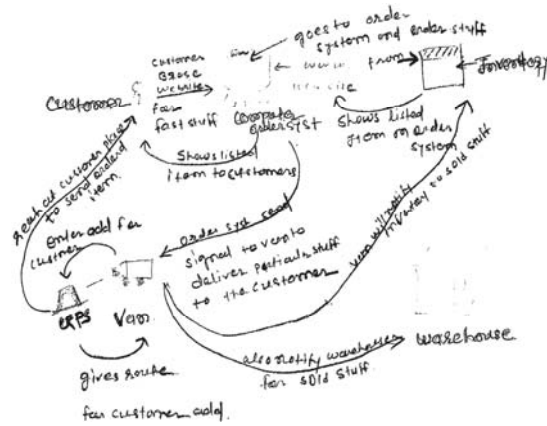 goes to order
system and order stuff
customer
Brose
website
for
fast stuff
from
Inventory
Customer
Computer
order syst
Shows listed
item on order
system
Shows listed
item to customers
reach at customer place
to send ordered
item.
Enter add for
custmer
order syst send
signal to van to
deliver particular stuff
to the customer
van will notify
inventory to sold stuff
GPS
Van
gives route
for customer add.
also notify warehouse
for sold stuff
warehouse